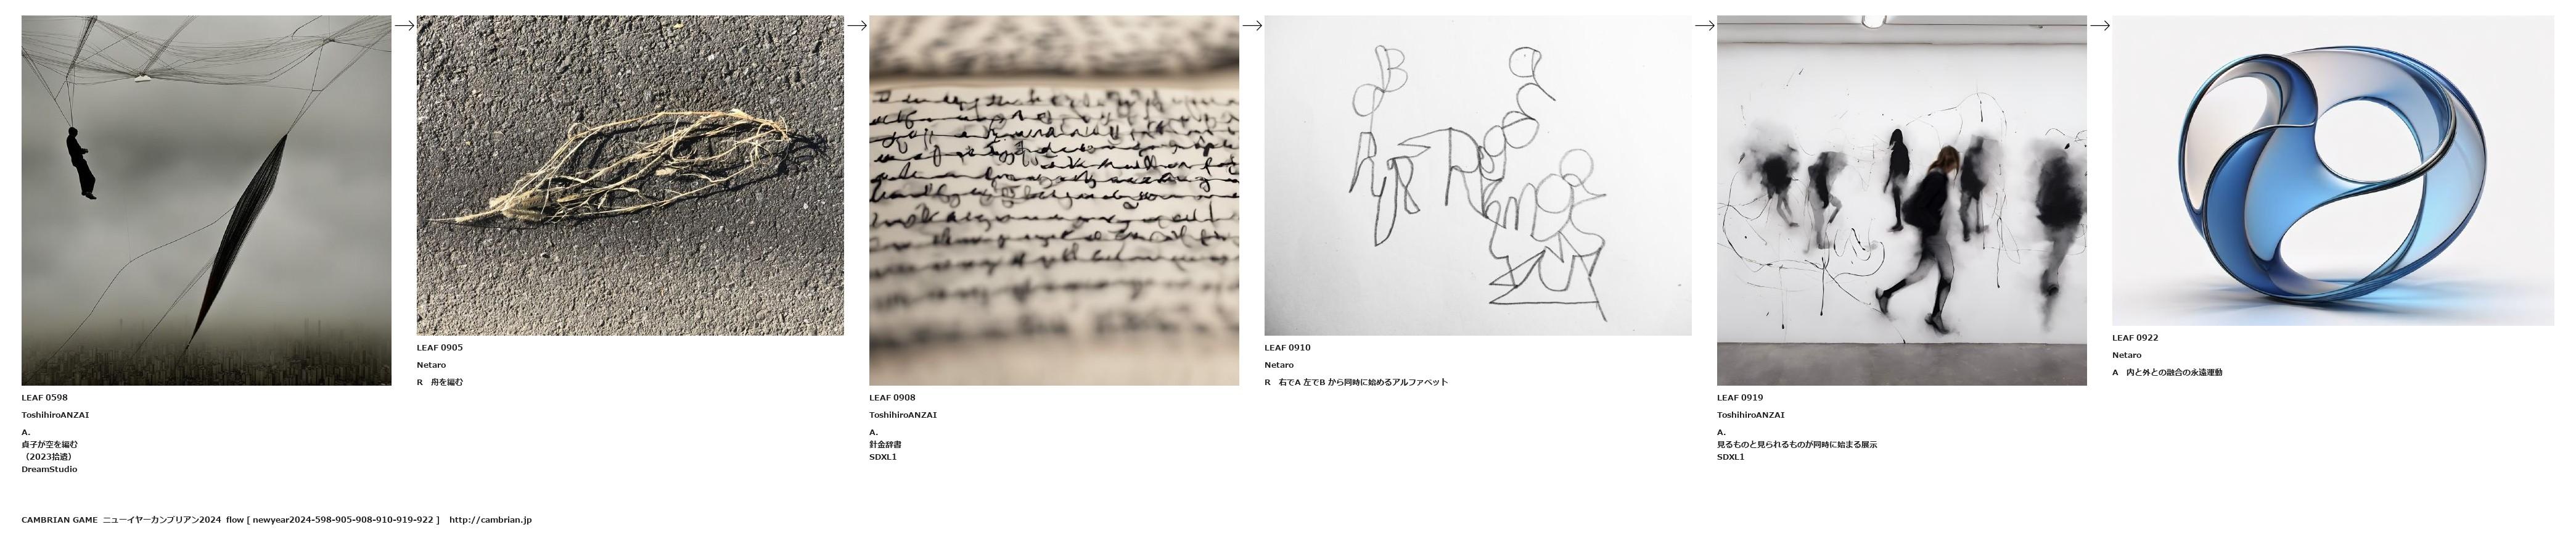 LEAF 0598
ToshihiroANZAI
A.
貞子が空を編む
（2023拾遺）
DreamStudio
LEAF 0905
Netaro
R　舟を編む
LEAF 0908
ToshihiroANZAI
A.
針金辞書
SDXL1
LEAF 0910
Netaro
R　右でA 左でB から同時に始めるアルファベット
LEAF 0919
ToshihiroANZAI
A.
見るものと見られるものが同時に始まる展示
SDXL1
LEAF 0922
Netaro
A　内と外との融合の永遠運動
CAMBRIAN GAME ニューイヤーカンブリアン2024 flow [ newyear2024-598-905-908-910-919-922 ] http://cambrian.jp